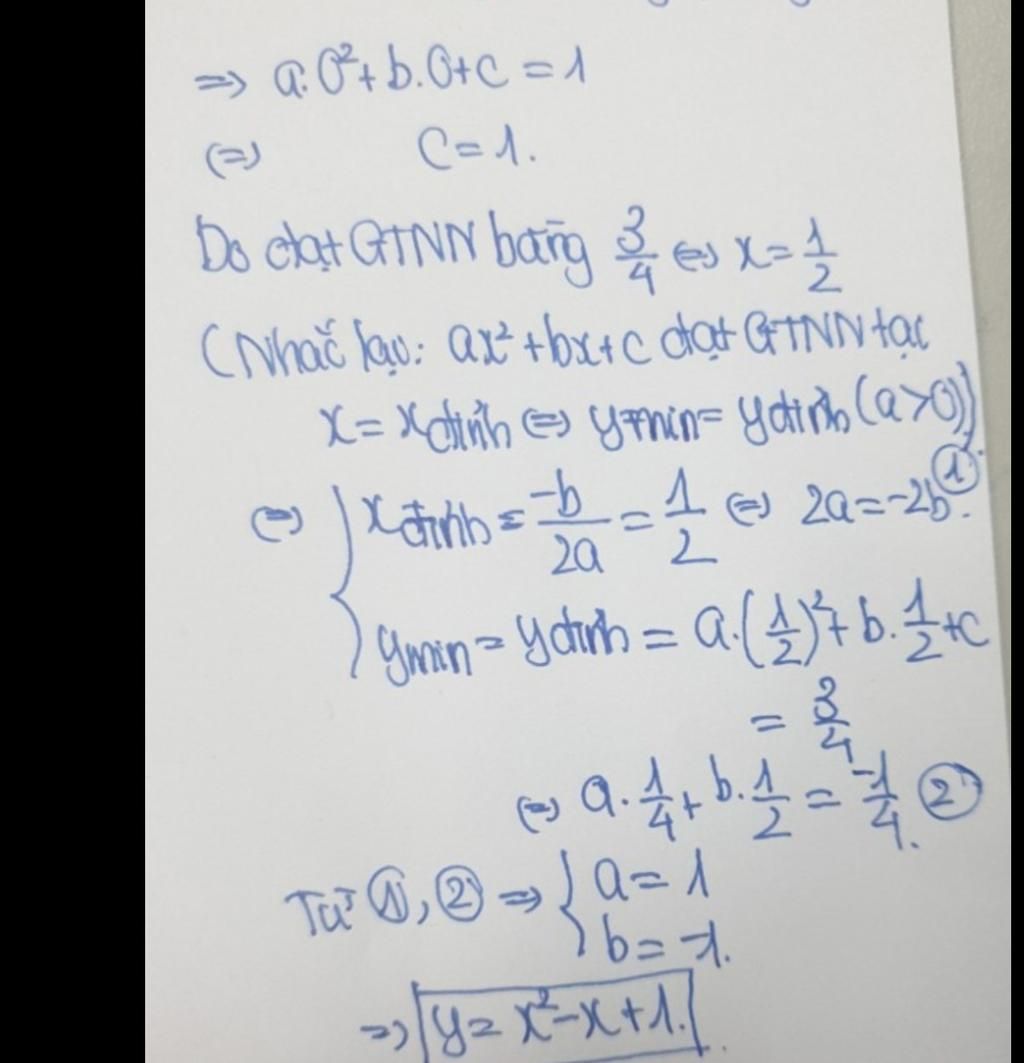 ⇒ a.0²+b.0+c = 1
⇔ C=1.
Do đạt GTNN bằng 3/4 ⇔ x = 1/2
(Nhắc lại: ax²+bx+c đạt GTNN tại
x = xđỉnh ⇔ ymin = yđỉnh (a>0))
⇔ { xđỉnh = -b/2a = 1/2 ⇔ 2a=-2b. ①
ymin = yđỉnh = a.(1/2)²+ b.1/2+c
= 3/4
⇔ a.1/4+ b.1/2 = -1/4. ②
Từ ①, ② ⇒ { a = 1
b = -1.
⇒ y = x²-x+1.